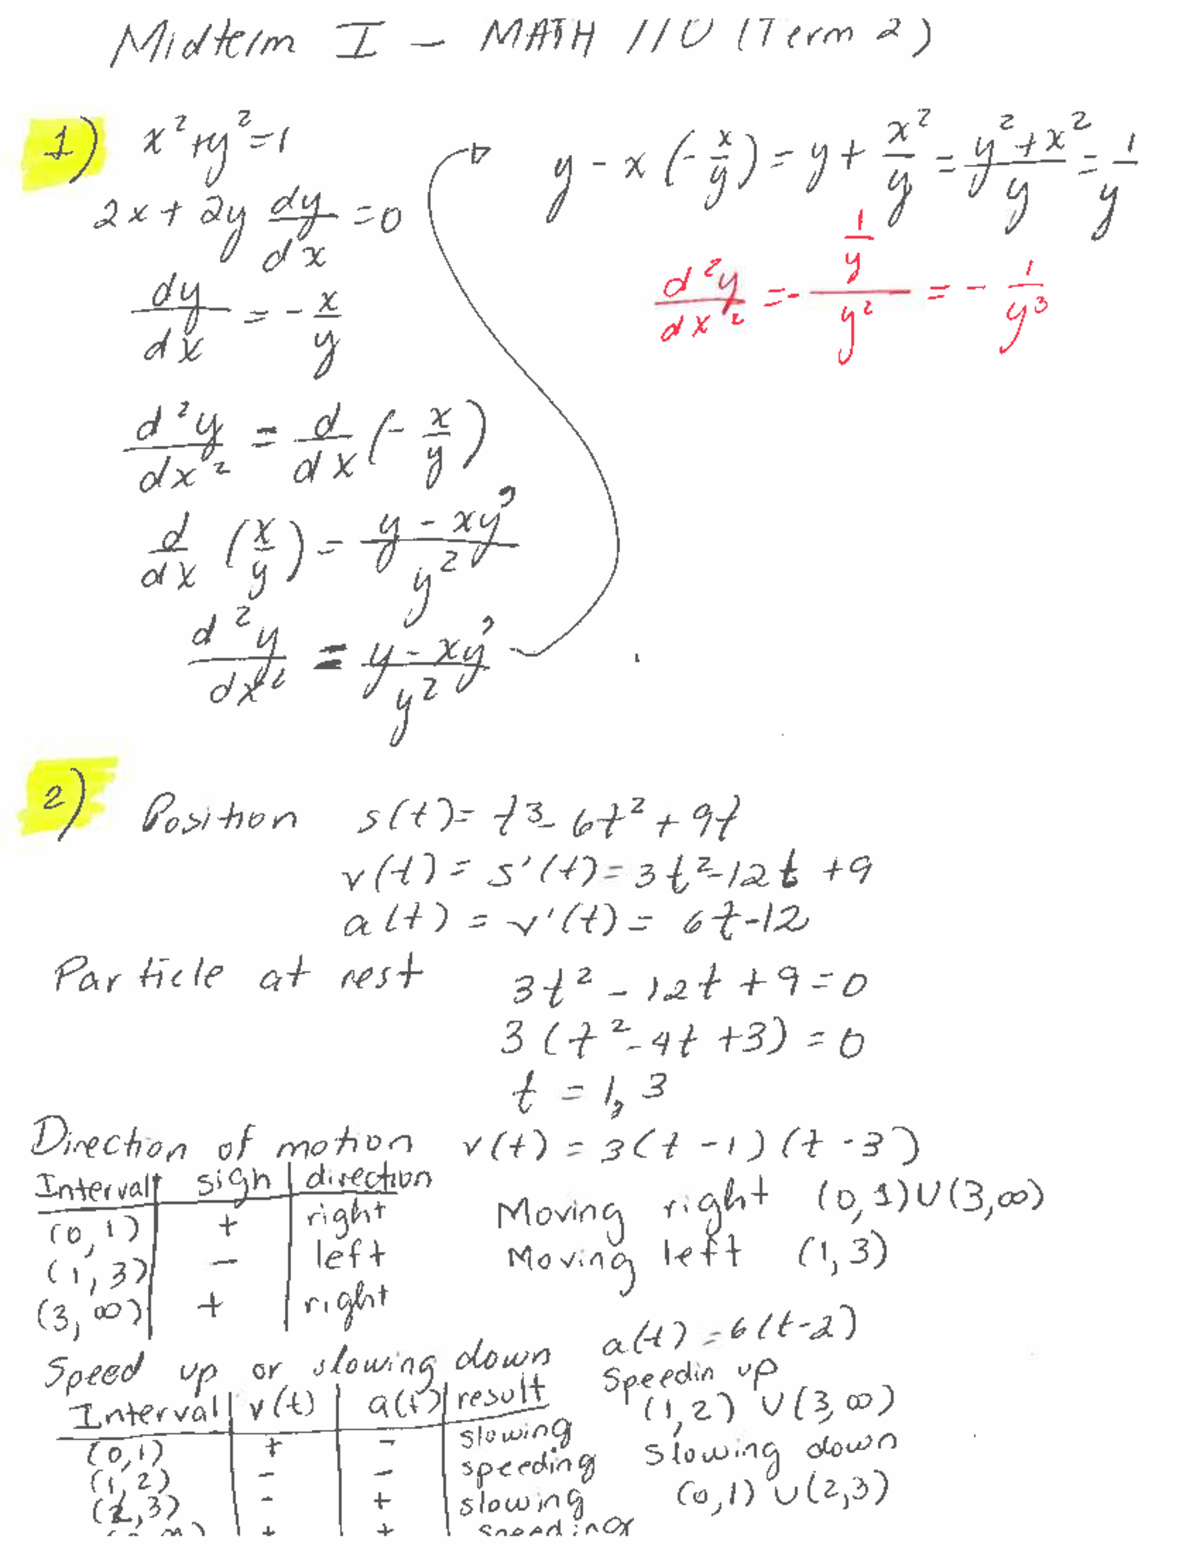 Midterm I - MATH 110 (Term 2)
1) x²+y²=1
2x+2y dy/dx=0
dy/dx = -x/y
d²y/dx² = d/dx(-x/y)
d/dx (x/y) = y-xy'/y²
d²y/dx² = y-xy'/y²
y-x(-x/y)=y+x²/y=y²+x²/y=1/y
d²y/dx²=-1/y/y²=-1/y³
2) Position s(t)=t³-6t²+9t
v(t)=s'(t)=3t²-12t+9
a(t)=v'(t)=6t-12
Particle at rest 3t²-12t+9=0
3(t²-4t+3)=0
t=1,3
Direction of motion v(t)=3(t-1)(t-3)
Interval sign direction
(0,1) + right
(1,3) - left
(3,∞) + right
Moving right (0,1)∪(3,∞)
Moving left (1,3)
Speed up or slowing down
Interval v(t) a(t) result
(0,1) + - slowing
(1,2) - - speeding
(2,3) - + slowing
+ + speeding
a(t)=6(t-2)
Speedin up
(1,2)∪(3,∞)
Slowing down
(0,1)∪(2,3)